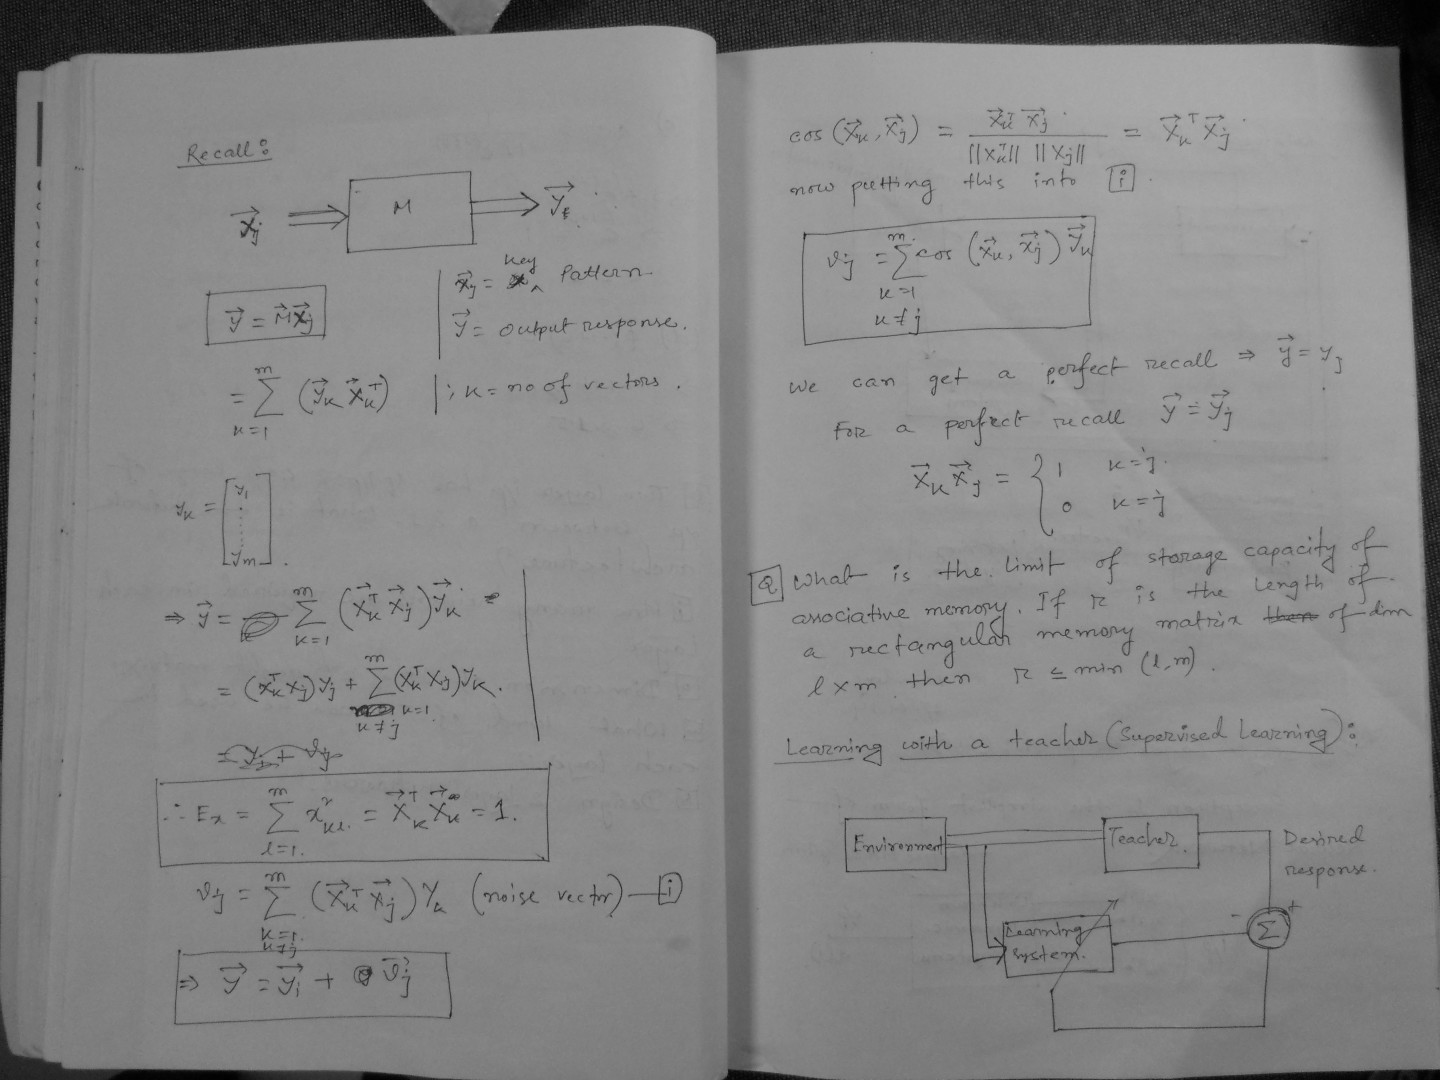 Recall :
x⃗j ⇒ M ⇒ y⃗
x⃗j = key Pattern
y⃗ = M⃗x⃗j
y⃗ = output response.
= Σ (k=1 to m) (y⃗k x⃗kᵀ) ; k = no of vectors.
yk = [y1 ⋮ ym].
⇒ y⃗ = Σ (k=1 to m) (x⃗kᵀ x⃗j) y⃗k =
= (xkᵀ xj) yj + Σ (k=1 to m, k≠j) (xkᵀ xj) yk.
= yj + vj
∴ Ex = Σ (l=1 to m) x²kl. = x⃗kᵀ x⃗k = 1.
vj = Σ (k=1 to m, k≠j) (x⃗kᵀ x⃗j) yk (noise vector) — i
⇒ y⃗ = y⃗j + v⃗j
cos (x⃗k, x⃗j) = x⃗kᵀ x⃗j / ||xkᵀ|| ||xj|| = x⃗kᵀ x⃗j
now putting this into i.
vj = Σ (k=1 to m, k≠j) cos (x⃗k, x⃗j) y⃗k
we can get a perfect recall ⇒ y⃗ = yj
For a perfect recall y⃗ = y⃗j
x⃗k x⃗j = { 1 k=j.
0 k=j
Q What is the limit of storage capacity of
associative memory. If r is the length of
a rectangular memory matrix then of dim
l×m then r ≤ min (l,m).
Learning with a teacher (Supervised Learning) :
Environment
Teacher.
Desired
response.
Learning
System.
- +
Σ